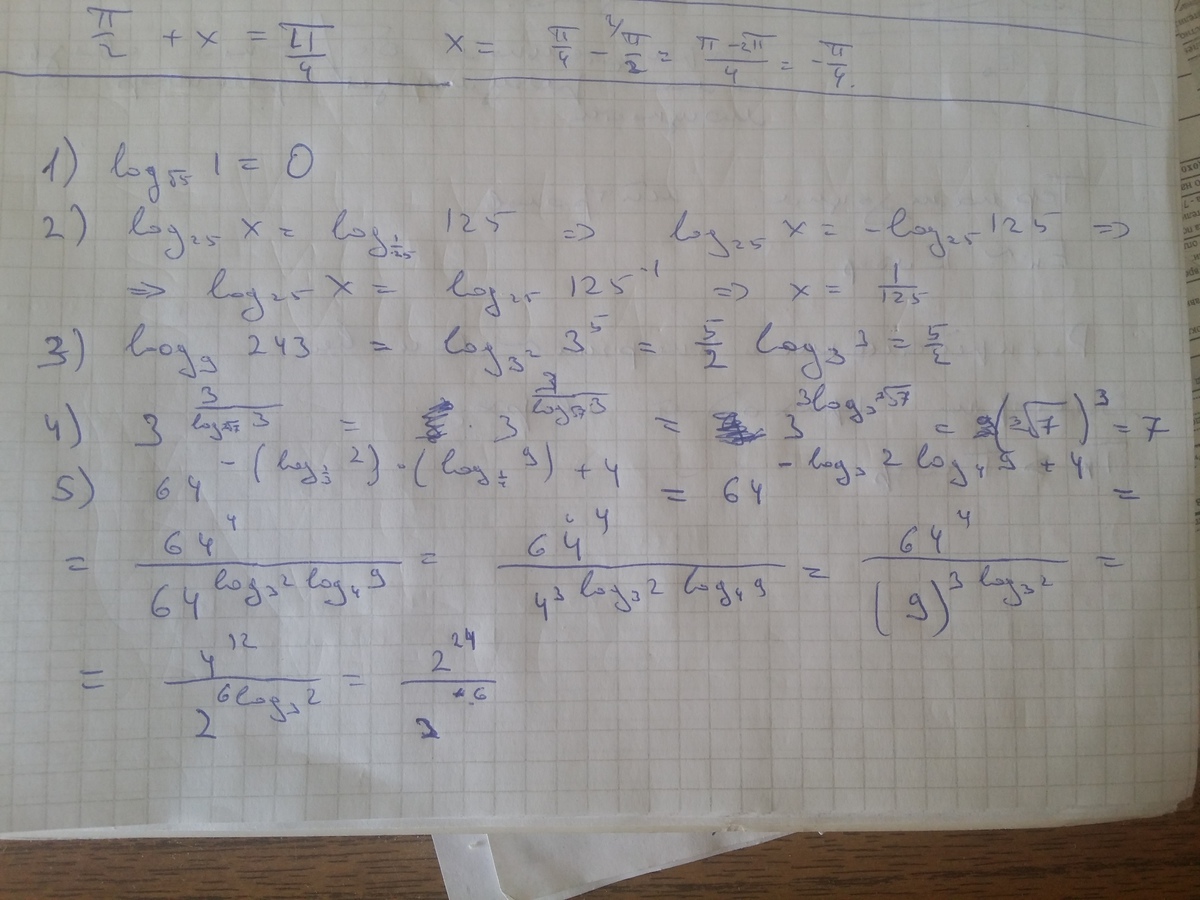 π/2 + x = π/4   x = π/4 - ²/π/2 = π-2π/4 = -π/4.
1) log_√5 1 = 0
2) log₂₅ x = log_1/25 125 => log₂₅ x = -log₂₅ 125 =>
=> log₂₅ x = log₂₅ 125⁻¹ => x = 1/125
3) log₉ 243 = log_3² 3⁵ = 5/2 log₃ 3 = 5/2
4) 3^(3/log_∛7 3) = · 3^(3/log_∛7 3) = 3^(3log₃ ∛7) = (∛7)³ = 7
5) 64^(-(log_1/3 2)·(log_1/4 9) + 4) = 64^(-log₃ 2 log₄ 9 + 4) =
= 64⁴/64^(log₃ 2 log₄ 9) = 64⁴/4^(3 log₃ 2 log₄ 9) = 64⁴/(9)^(3 log₃ 2) =
= 4¹²/2^(6 log₃ 2) = 2²⁴/2^6